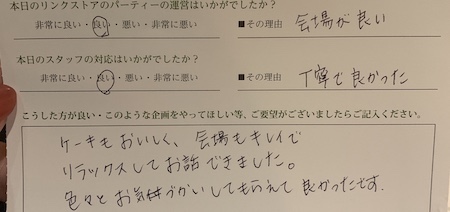 本日のリンクストアのパーティーの運営はいかがでしたか？
非常に良い・良い・悪い・非常に悪い ■その理由 会場が良い
本日のスタッフの対応はいかがでしたか？
非常に良い・良い・悪い・非常に悪い ■その理由 丁寧で良かった
こうした方が良い・このような企画をやってほしい等、ご要望がございましたらご記入ください。
ケーキもおいしく、会場もキレイで
リラックスしてお話できました。
色々とお気持づかいしてもらえて良かったです。